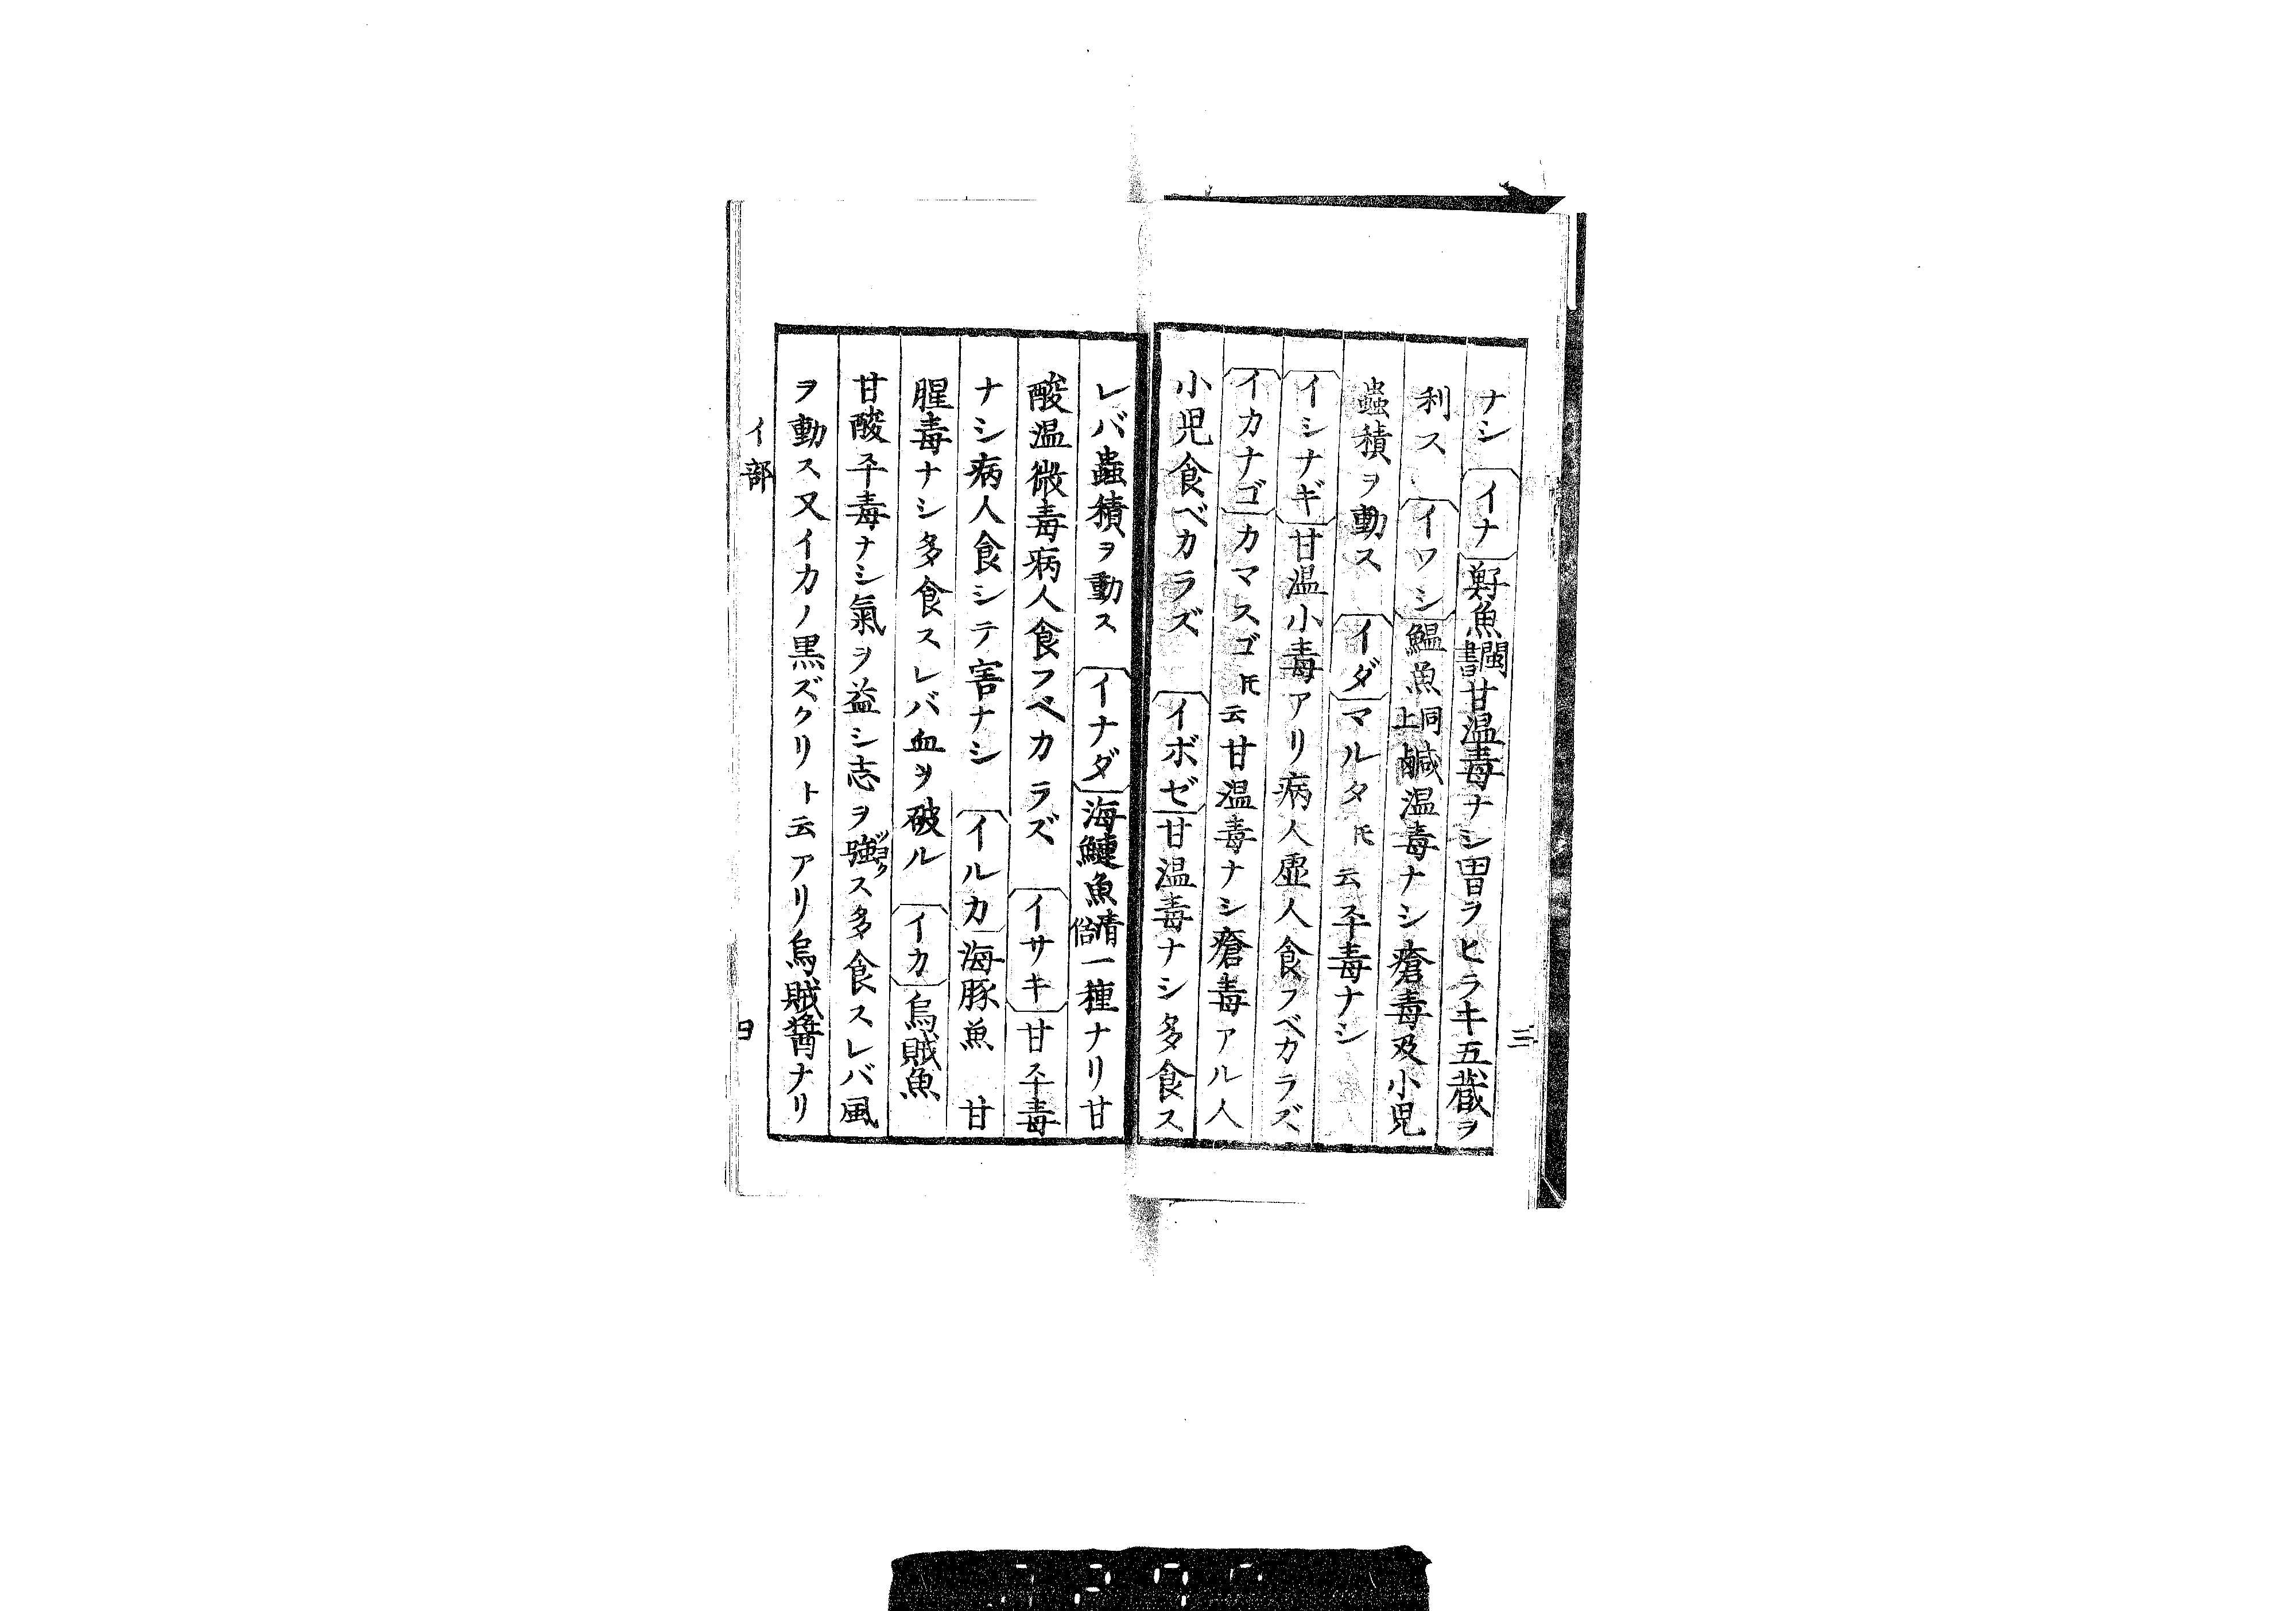 ナシ〔イナ〕魣魚閩書甘温毒ナシ胃ヲヒラキ五藏ヲ
利ス〔イワシ〕鰛魚同上鹹温毒ナシ瘡毒及小児
蟲積ヲ動ス〔イダ〕マルタ 𪜈云 平毒ナシ
〔イシナギ〕甘温小毒アリ病人虚人食フベカラズ、
〔イカナゴ〕カマスゴ 𪜈云 甘温毒ナシ瘡毒アル人
小児食ベカラズ〔イボゼ〕甘温毒ナシ多食ス
レバ蟲積ヲ動ス〔イナダ〕海鰱魚清俗一種ナリ甘
酸温微毒病人食フベカラズ〔イサキ〕甘平毒
ナシ病人食シテ害ナシ〔イルカ〕海豚魚 甘
腥毒ナシ多食スレバ血ヲ破ル〔イカ〕烏賊魚
甘酸平毒ナシ氣ヲ益シ志ヲ強ツヨクス多食スレバ風
ヲ動ス又イカノ黒ズクリト云アリ烏賊醬ナリ
イ部
三
四